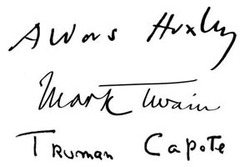 Aldous Huxley
Mark Twain
Truman Capote